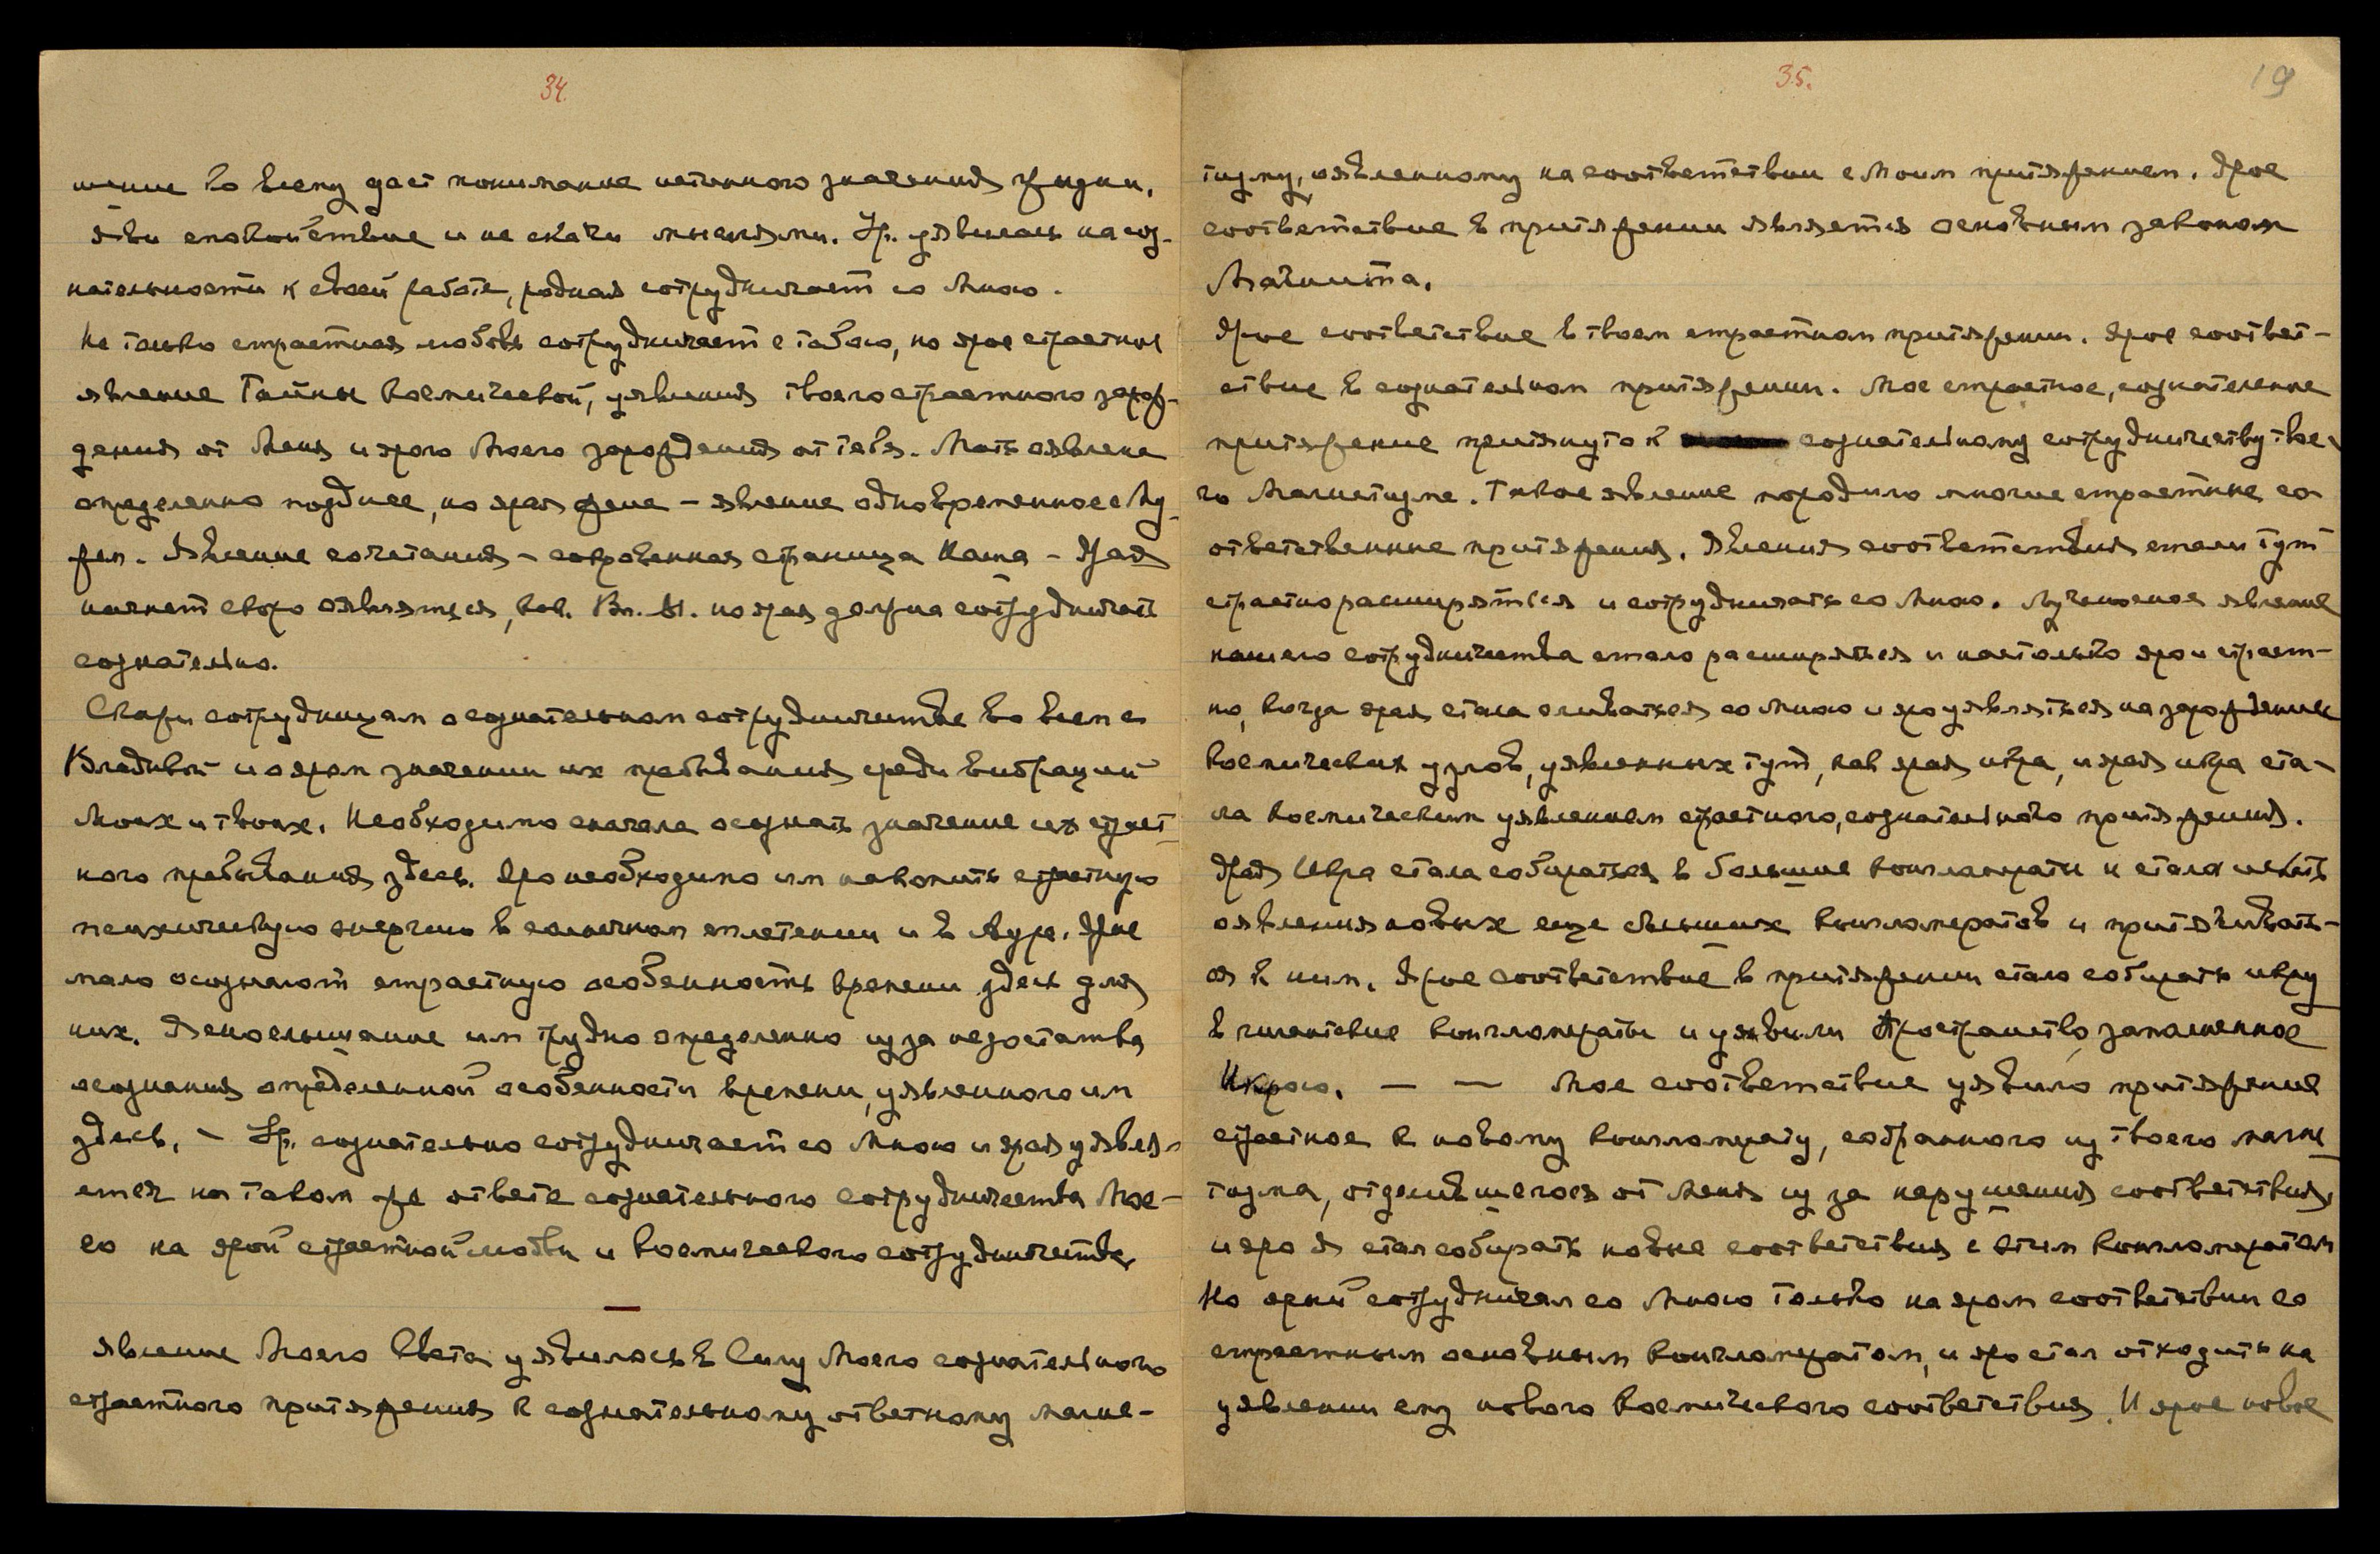 34.
шение ко всему дает понимание истинного значения жизни.
яви спокойствие и не скачи мыслями. Зр. уявилась на соз-
нательности к своей работе, родная сотрудничает со Мною.
Не только страстная любовь сотрудничает с тобою, но ярое страстное
явление Тайны Космической, уявления твоего страстного зарож-
дения от Меня и ярого Моего зарождения от тебя. Мать оявлена
определенно позднее, но ярая жена – явление одновременное с Му-
жем. Явление сочетания – сокровенная страница Наша – Ярая
начнет скоро оявляться, как Вл. Вл. но ярая должна сотрудничать
сознательно.
Скажи сотрудницам о сознательном сотрудничестве во всем с
Владыкой и о яром значении их пребывания среди вибраций
Моих и твоих. Необходимо сначала осознать значение их страст-
ного пребывания здесь. Яро необходимо им накопить страстную
психическую энергию в солнечном сплетении и в Ауре. Ярые
мало осознают страстную особенность времени здесь для
них. Яснослышание им трудно определенно из за недостатка
осознания определенной особенности времени, уявленного им
здесь. – Зр. сознательно сотрудничает со Мною и ярая уявля-
ется на таком же ответе сознательного сотрудничества Мое-
го на ярой страстной любви и космического сотрудничества.
—
явление Моего Света уявилось в Силу Моего сознательного
страстного притяжения к сознательному ответному магне-
35.
19
тизму, оявленному на соответствии с Моим притяжением. Ярое
соответствие в притяжении является основным законом
Магнита.
Ярое соответствие в твоем страстном притяжении. Ярое соответ-
ствие в сознательном притяжении. Мое страстное, сознательное
притяжение притянуто к сознательному сотрудничеству твое-
го Магнетизма. Такое явление породило многие страстные со-
ответственные притяжения. Явления соответствия стали тут
страстно расширяться и сотрудничать со Мною. Лучшее явление
нашего сотрудничества стало расширяться и настолько яро и страст-
но, когда ярая стала сливаться со Мною и яро уявляться на зарождении
космических узлов, уявленных тут, как ярая искра, и ярая искра ста-
ла космическим уявлением страстного, сознательного притяжения.
Ярая Искра стала собираться в большие конгломераты и стала искать
оявления новых еще больших конгломератов и притягивать-
ся к ним. Ярое соответствие в притяжении стало собирать искру
в гигантские конгломераты и уявили Пространство, заполненное
Искрою. — — Мое соответствие уявило притяжение
страстное к новому конгломерату, собранного из твоего магне
тизма, отделившегося от Меня из за нарушения соответствия,
и яро Я стал собирать новые соответствия с этим конгломератом
Но ярый сотрудничал со Мною только на яром соответствии со
страстным основным конгломератом, и яро стал отходить на
уявлении ему нового космического соответствия. И ярое новое